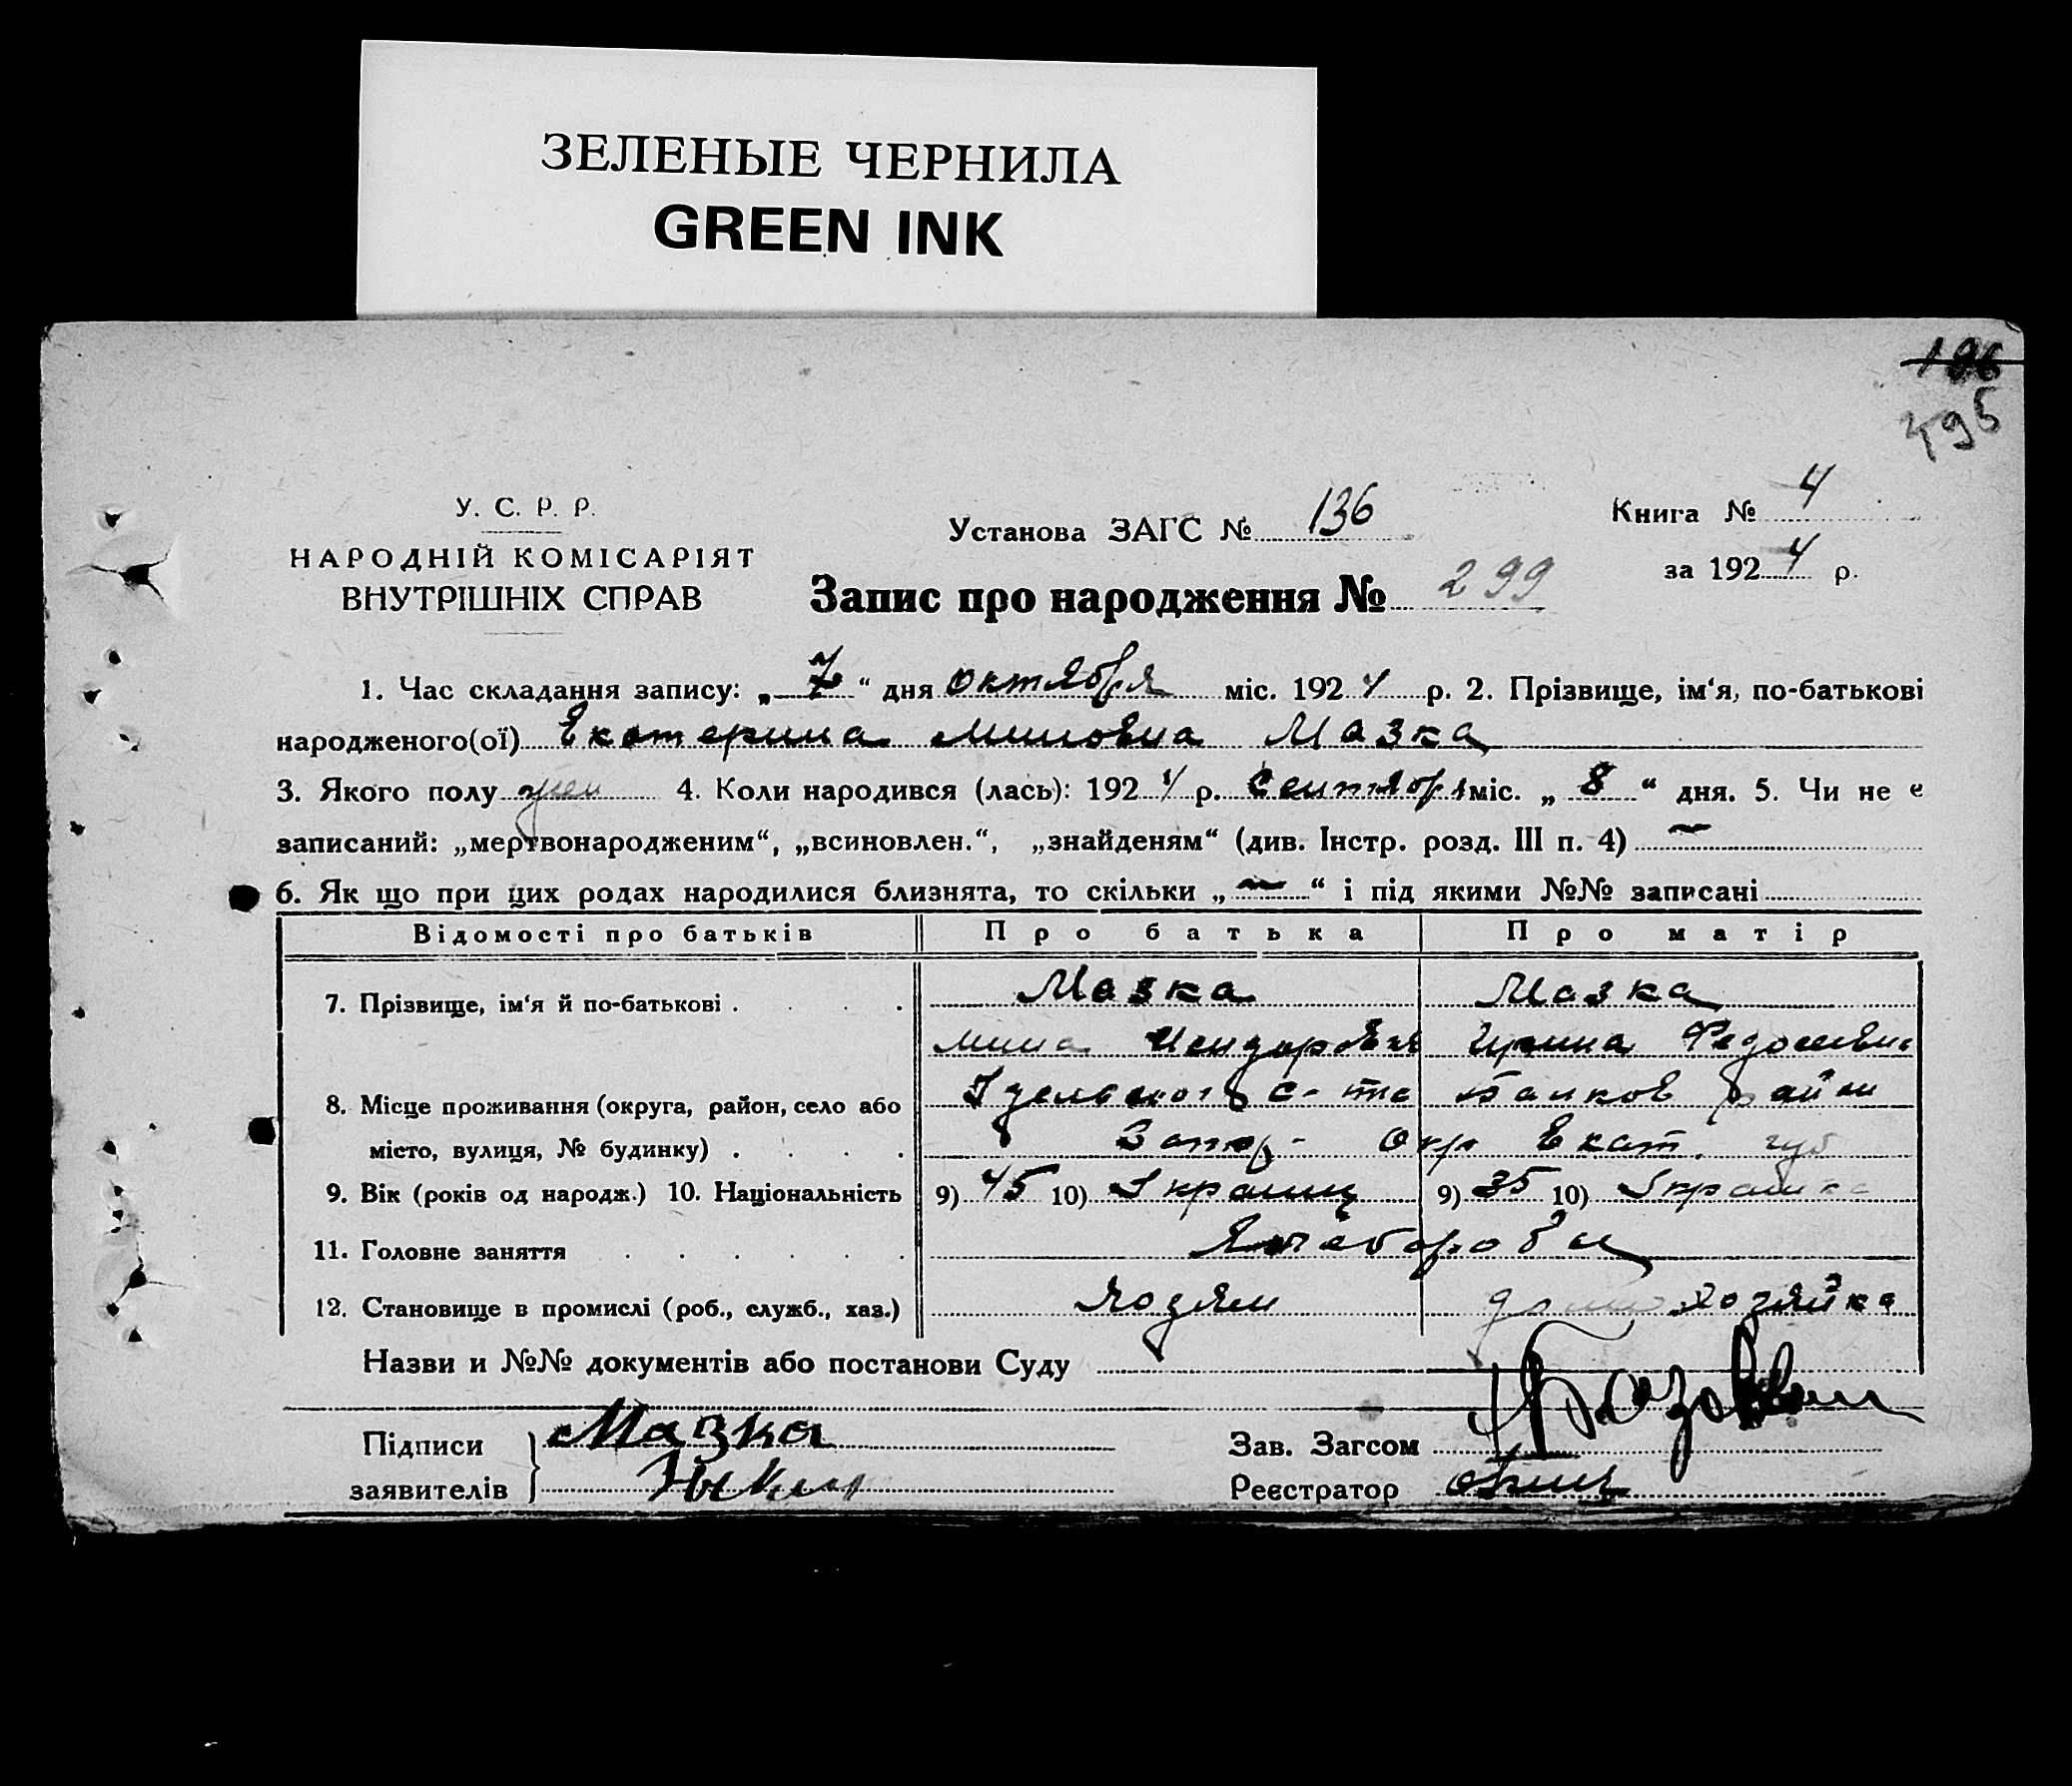 ЗЕЛЕНЫЕ ЧЕРНИЛА
GREEN INK
196
495
У. С. Р. Р.
НАРОДНІЙ КОМІСАРІЯТ
ВНУТРІШНІХ СПРАВ
Установа ЗАГС № 136
Книга № 4
за 1924 р.
Запис про народження № 299
1. Час складання запису: „ 7 “ дня октября міс. 1924 р. 2. Прізвище, ім‘я, по-батькові
народженого(ої) Екатерина Миновна Мазка
3. Якого полу жен 4. Коли народився (лась): 1924 р. Сентября міс. „ 8 “ дня. 5. Чи не є
записаний: „мертвонародженим“, „всиновлен.“, „знайденям“ (див. Інстр. розд. III п. 4) —
6. Як що при цих родах народилися близнята, то скільки „ — “ і під якими №№ записані
Відомості про батьків Про батька Про матір
7. Прізвище, ім‘я й по-батькові . . . Мазка Мазка
Мина Исидорович Ирина Федосеевна
8. Місце проживання (округа, район, село або с-та Балков район
місто, вулиця, № будинку) . . . . Запор- Окр Екат. губ
9. Вік (років од народж.) 10. Національність 9) 45 10) Украинц 9) 35 10)
11. Головне заняття . . . . . Хлеборобы
12. Становище в промислі (роб., служб., хаз.) хозяин дом. хозяйка
Назви и №№ документів або постанови Суду
Підписи Мазка
Зав. Загсом
заявителів
Реєстратор